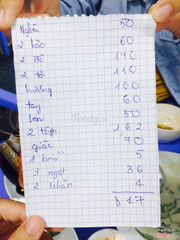 Nghêu 50
2 hào 60
2 đề 140
2 tỏi 110
hương 100
tay 60
lon 50
2 tôm 162
giấc 70
1 5
3 ngọt 36
2 khăn 4
817